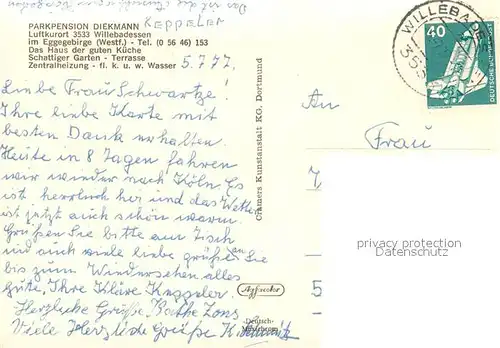 PARKPENSION DIEKMANN
KEPPELER
Luftkurort 3533 Willebadessen
im Eggegebirge (Westf.) - Tel. (0 56 46) 153
Das Haus der guten Küche
Schattiger Garten - Terrasse
Zentralheizung - fl. k. u. w. Wasser
5.7.77.
Liebe Frau Schwartze!
Ihre liebe Karte mit
besten Dank erhalten.
Heute in 8 Tagen fahren
wir wieder nach Köln Es
ist herrlich hier und das Wetter
ist jetzt auch schön warm.
Grüßen Sie bitte am Tisch
und auch viele liebe Grüße an Sie
bis zum Wiedersehen alles
gute, Ihre Kläre Keppeler.
Herzliche Grüße Käthe Zons
Viele Herzliche Grüße K.
Cramers Kunstanstalt KG, Dortmund
Agfacolor
Deutsch-
An
Frau
5
WILLEBADE
353
40
DEUTSCHE BUNDESPOST
privacy protection
Datenschutz